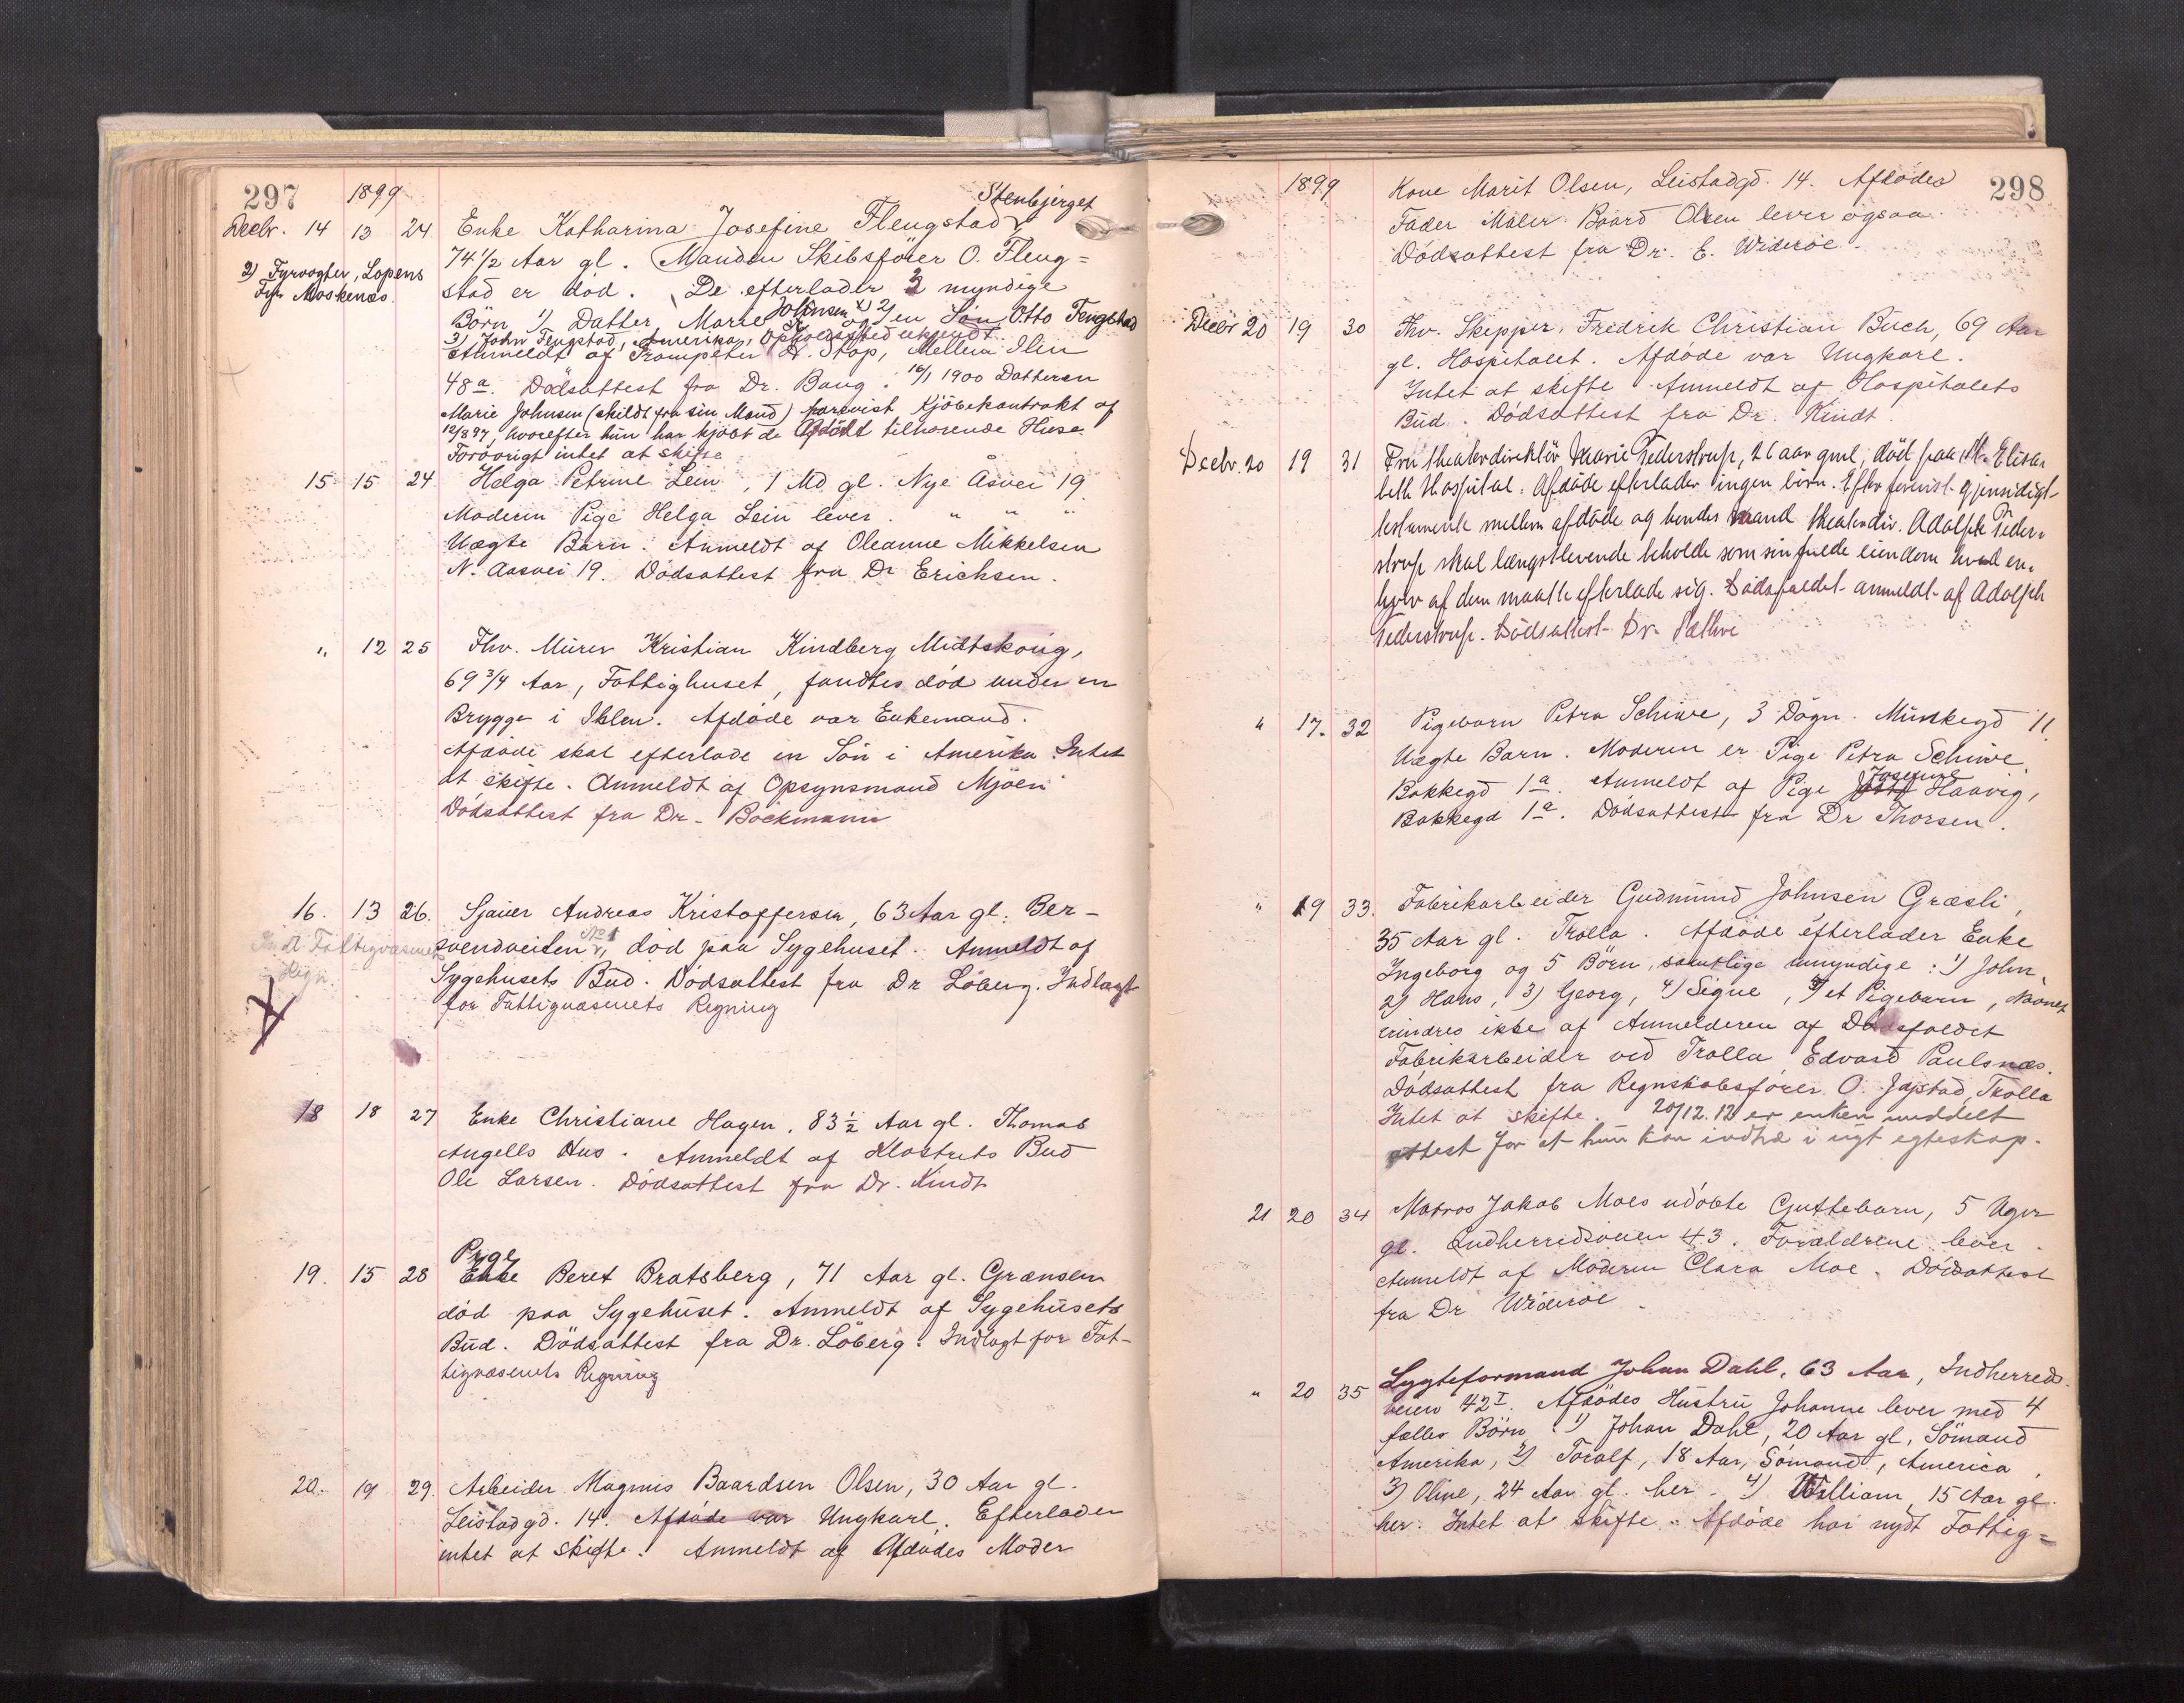 297 1899
Decbr. 14 13 24 Enke Katharina Josefine Flengstad, Stenbjerget
74 1/2 Aar gl. Manden Skibsfører O. Fleng=
stad er død. De efterlader 3 myndige
Börn 1) Datter Marie Johnsen og 2) en Sön Otto Fengstad
3) John Fengstad, Amerika, Opholdssted ukjendt.
2) Fyrvogter, Lopens
Fyr Moskenæs.
Anmeldt af Trompeter H. Stap, Mellem Ilin
48a. Dödsattest fra Dr. Bang. 16/1 1900 Datteren
Marie Johnsen (skildt fra sin Mand) forevist Kjöbekontrakt af
12/8 97, hvorefter hun har kjöbt de Afdöde tilhörende Huse.
Forövrigt intet at skifte
15 15 24 Helga Petrine Lein, 1 Md gl. Nye Åsvei 19
Moderen Pige Helga Lein lever. " " "
Uægte Barn. Anmeldt af Oleanne Mikkelsen
N. Aasvei 19. Dödsattest fra Dr Erichsen.
" 12 25 Fhv. Murer Kristian Kindberg Midtskoug,
69 3/4 Aar, Fattighuset, fandtes död under en
Brygge i Ihlen. Afdöde var Enkemand.
Afdöde skal efterlade en Sön i Amerika. Intet
at skifte. Anmeldt af Opsynsmand Mjöen
Dödsattest fra Dr. Böckmann
16. 13 26. Sjauer Andreas Kristoffersen, 63 Aar gl. Ber-
svendveiten No 1, död paa Sygehuset. Anmeldt af
Sygehusets Bud. Dödsattest fra Dr Löberg. Indlagt
for Fattigvæsenets Regning
18 18 27 Enke Christiane Hagen, 83 1/2 Aar gl. Thomas
Angells Hus. Anmeldt af Klostrets Bud
Ole Larsen. Dödsattest fra Dr. Kindt
19. 15 28 Enke Pige Beret Bratsberg, 71 Aar gl. Grænsen
död paa Sygehuset. Anmeldt af Sygehusets
Bud. Dödsattest fra Dr. Löberg. Indlagt for Fat-
tigvæsenets Regning
20. 19 29. Arbeider Magnus Baardsen Olsen, 30 Aar gl.
Leistadgd. 14. Afdöde var Ungkarl. Efterlader
intet at skifte. Anmeldt af Afdödes Moder
1899 298
Kone Marit Olsen, Leistadgd. 14. Afdödes
Fader Maler Baard Olsen lever ogsaa.
Dödsattest fra Dr. E. Wideröe.
Decbr 20 19 30 Fhv. Skipper Fredrik Christian Buch, 69 Aar
gl. Hospitalet. Afdöde var Ungkarl.
Intet at skifte. Anmeldt af Hospitalets
Bud. Dödsattest fra Dr. Kindt.
Decbr. 20 19 31 Fru theaterdirektör Marie Tederstrup, 26 aar gml, död paa St. Elisa-
beth Hospital. Afdöde efterlader ingen börn. Efter forevist gjensidigt
testamente mellem afdöde og hendes mand theaterdir. Adolph Teder-
strup skal længstlevende beholde som sin fulde eiendom hvad en-
hver af dem maatte efterlade sig. Dödsfaldet anmeldt af Adolph
Tederstrup. Dödsattest Dr. Sæthre
" 17. 32 Pigebarn Petra Schiwe, 3 Dögn. Munkegd 11.
Uægte Barn. Moderen er Pige Petra Schiwe.
Bakkegd 1a. Anmeldt af Pige Josefine Haavig,
Bakkegd 1a. Dödsattest fra Dr Thorsen.
" 19 33. Fabrikarbeider Gudmund Johnsen Græsli,
35 Aar gl. Trolla. Afdöde efterlader Enke
Ingeborg og 5 Börn, samtlige umyndige: 1) John,
2) Hans, 3) Georg, 4) Signe, 5) et Pigebarn, Navnet
erindres ikke af Anmelderen af Dödsfaldet
Fabrikarbeider ved Trolla Edvard Paulsnæs.
Dödsattest fra Regnskabsförer O. Jøpstad, Trolla
Intet at skifte. 20/12.12 er enken meddelt
attest for at hun kan indtræ i nyt egteskap.
21 20 34 Matros Jakob Moes udöbte Guttebarn, 5 Uger
gl. Indherredsveien 43. Forældrene lever.
Anmeldt af Moderen Clara Moe. Dödsattest
fra Dr Wideröe.
" 20 35 Lygteformand Johan Dahl, 63 Aar, Indherreds-
veien 42I. Afdödes Hustru Johanne lever med 4
fælles Börn 1) Johan Dahl, 20 Aar gl, Sömand
Amerika, 2) Toralf, 18 Aar, Sömand, America,
3) Oline, 24 Aar gl. her. 4) William, 15 Aar gl.
her. Intet at skifte. Afdöde har nydt Fattig=